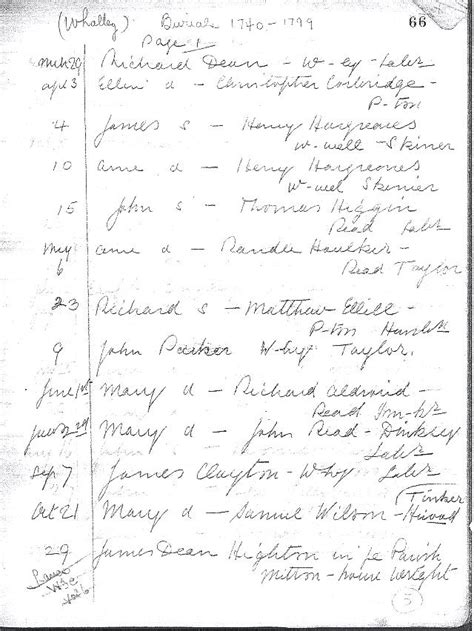 (Whalley) Burials 1740-1799 66
Page 1.
Mch 29 Richard Dean - W-ey - Labr
Apl 3 Ellin d - Christopher Corbridge -
P-ton
4 James s - Henry Hargreaves
W-well - Skiner
10 Anne d - Henry Hargreaves
W-wel Skinier
15 John s - Thomas Higgin
Read Labr
May 6 Anne d - Randle Haulker -
Read Taylor
23 Richard s - Matthew Ellill -
P-ton
9 John Parker W-hey Taylor.
June 1st Mary d - Richard Aldroid -
Read Inn-kr
June 2nd Mary d - John Read - Dinkley
Labr
Sep 7 James Clayton - Why Labr
(Tinker
Oct 21 Mary d - Samuel Wilson -
29 James Dean Highton in ye Parish
Mitton - house wright
5